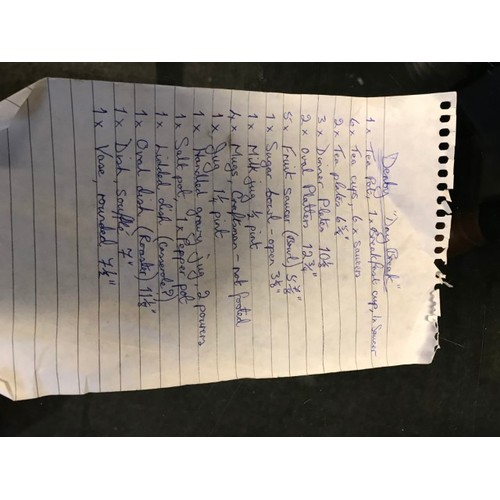 Denby "Day Break"
1 x Tea Pot, 1 x Breakfast cup, 1 x Saucer
6 x Tea cups, 6 x Saucers
2 x Tea plates 6 3/4"
3 x Dinner Plates 10 1/8
2 x Oval Platters 12 3/4"
5 x Fruit saucer (Bowl) 5 7/8"
1 x Sugar bowl - open 3 3/8"
1 x Milk jug 1/2 pint
4 x Mugs, Craftsman - not footed
1 x Jug, 1 1/2 pint
1 x Handled gravy jug 2 pourers
1 x Salt pot 1 x Pepper pot
1 x Lidded dish (casserole?)
1 x Oval dish (Roaster) 11 1/8"
1 x Dish soufflé 7"
1 x Vase, rounded 7 1/8"